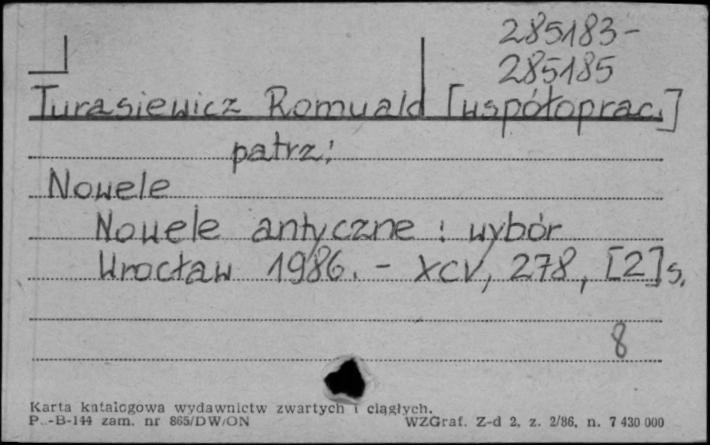 285183-
285185
Turasiewicz Romuald [współoprac.]
patrz:
Nowele
Nowele antyczne : wybór
Wrocław 1986. - XCV, 278, [2] s.
8
Karta katalogowa wydawnictw zwartych i ciągłych.
P..-B-144 zam. nr 865/DW/ON WZGraf. Z-d 2, z. 2/86, n. 7 430 000